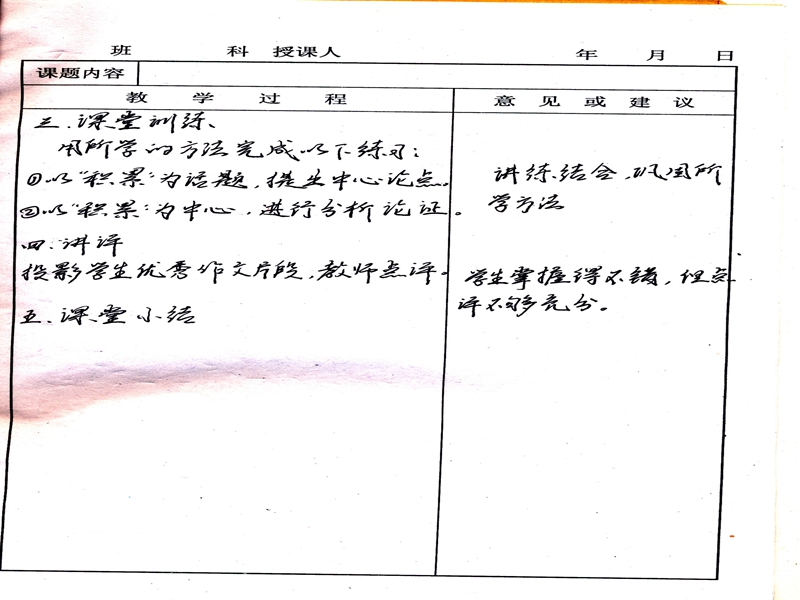 班 科 授课人 年 月 日
课题内容
教 学 过 程
意 见 或 建 议
三.课堂训练、
用所学的方法完成以下练习：
①以“积累”为话题，提出中心论点。
②以“积累”为中心，进行分析论证。
四.讲评
投影学生优秀作文片段，教师点评。
五.课堂小结
讲练结合，巩固所
学方法
学生掌握得不错，但点
评不够充分。